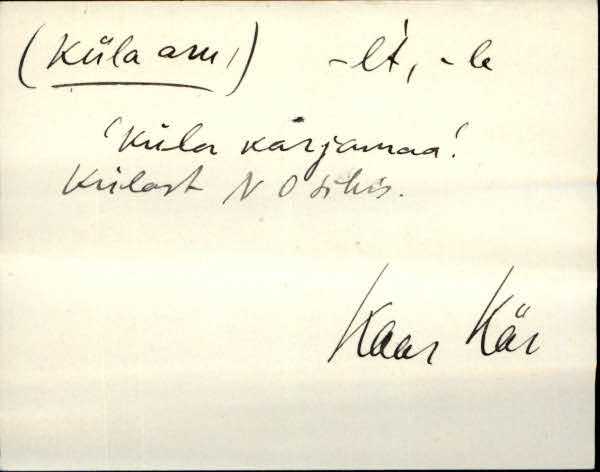 (Küla aru) -lt, -le
'küla karjamaa'.
Külast N O sihis.
Kaar Kär